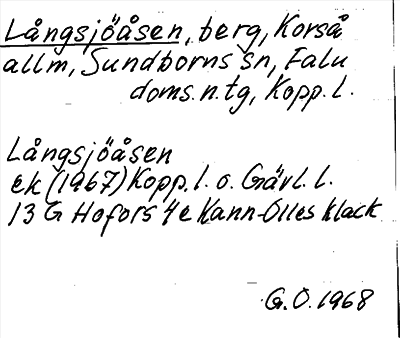 Långsjöåsen, berg, Korså
allm, Sundborns sn, Falu
doms.n.tg, Kopp. l.
Långsjöåsen
ek (1967) Kopp. l. o. Gävl. l.
13 G Hofors 4e Kann-Olles klack
G.O. 1968